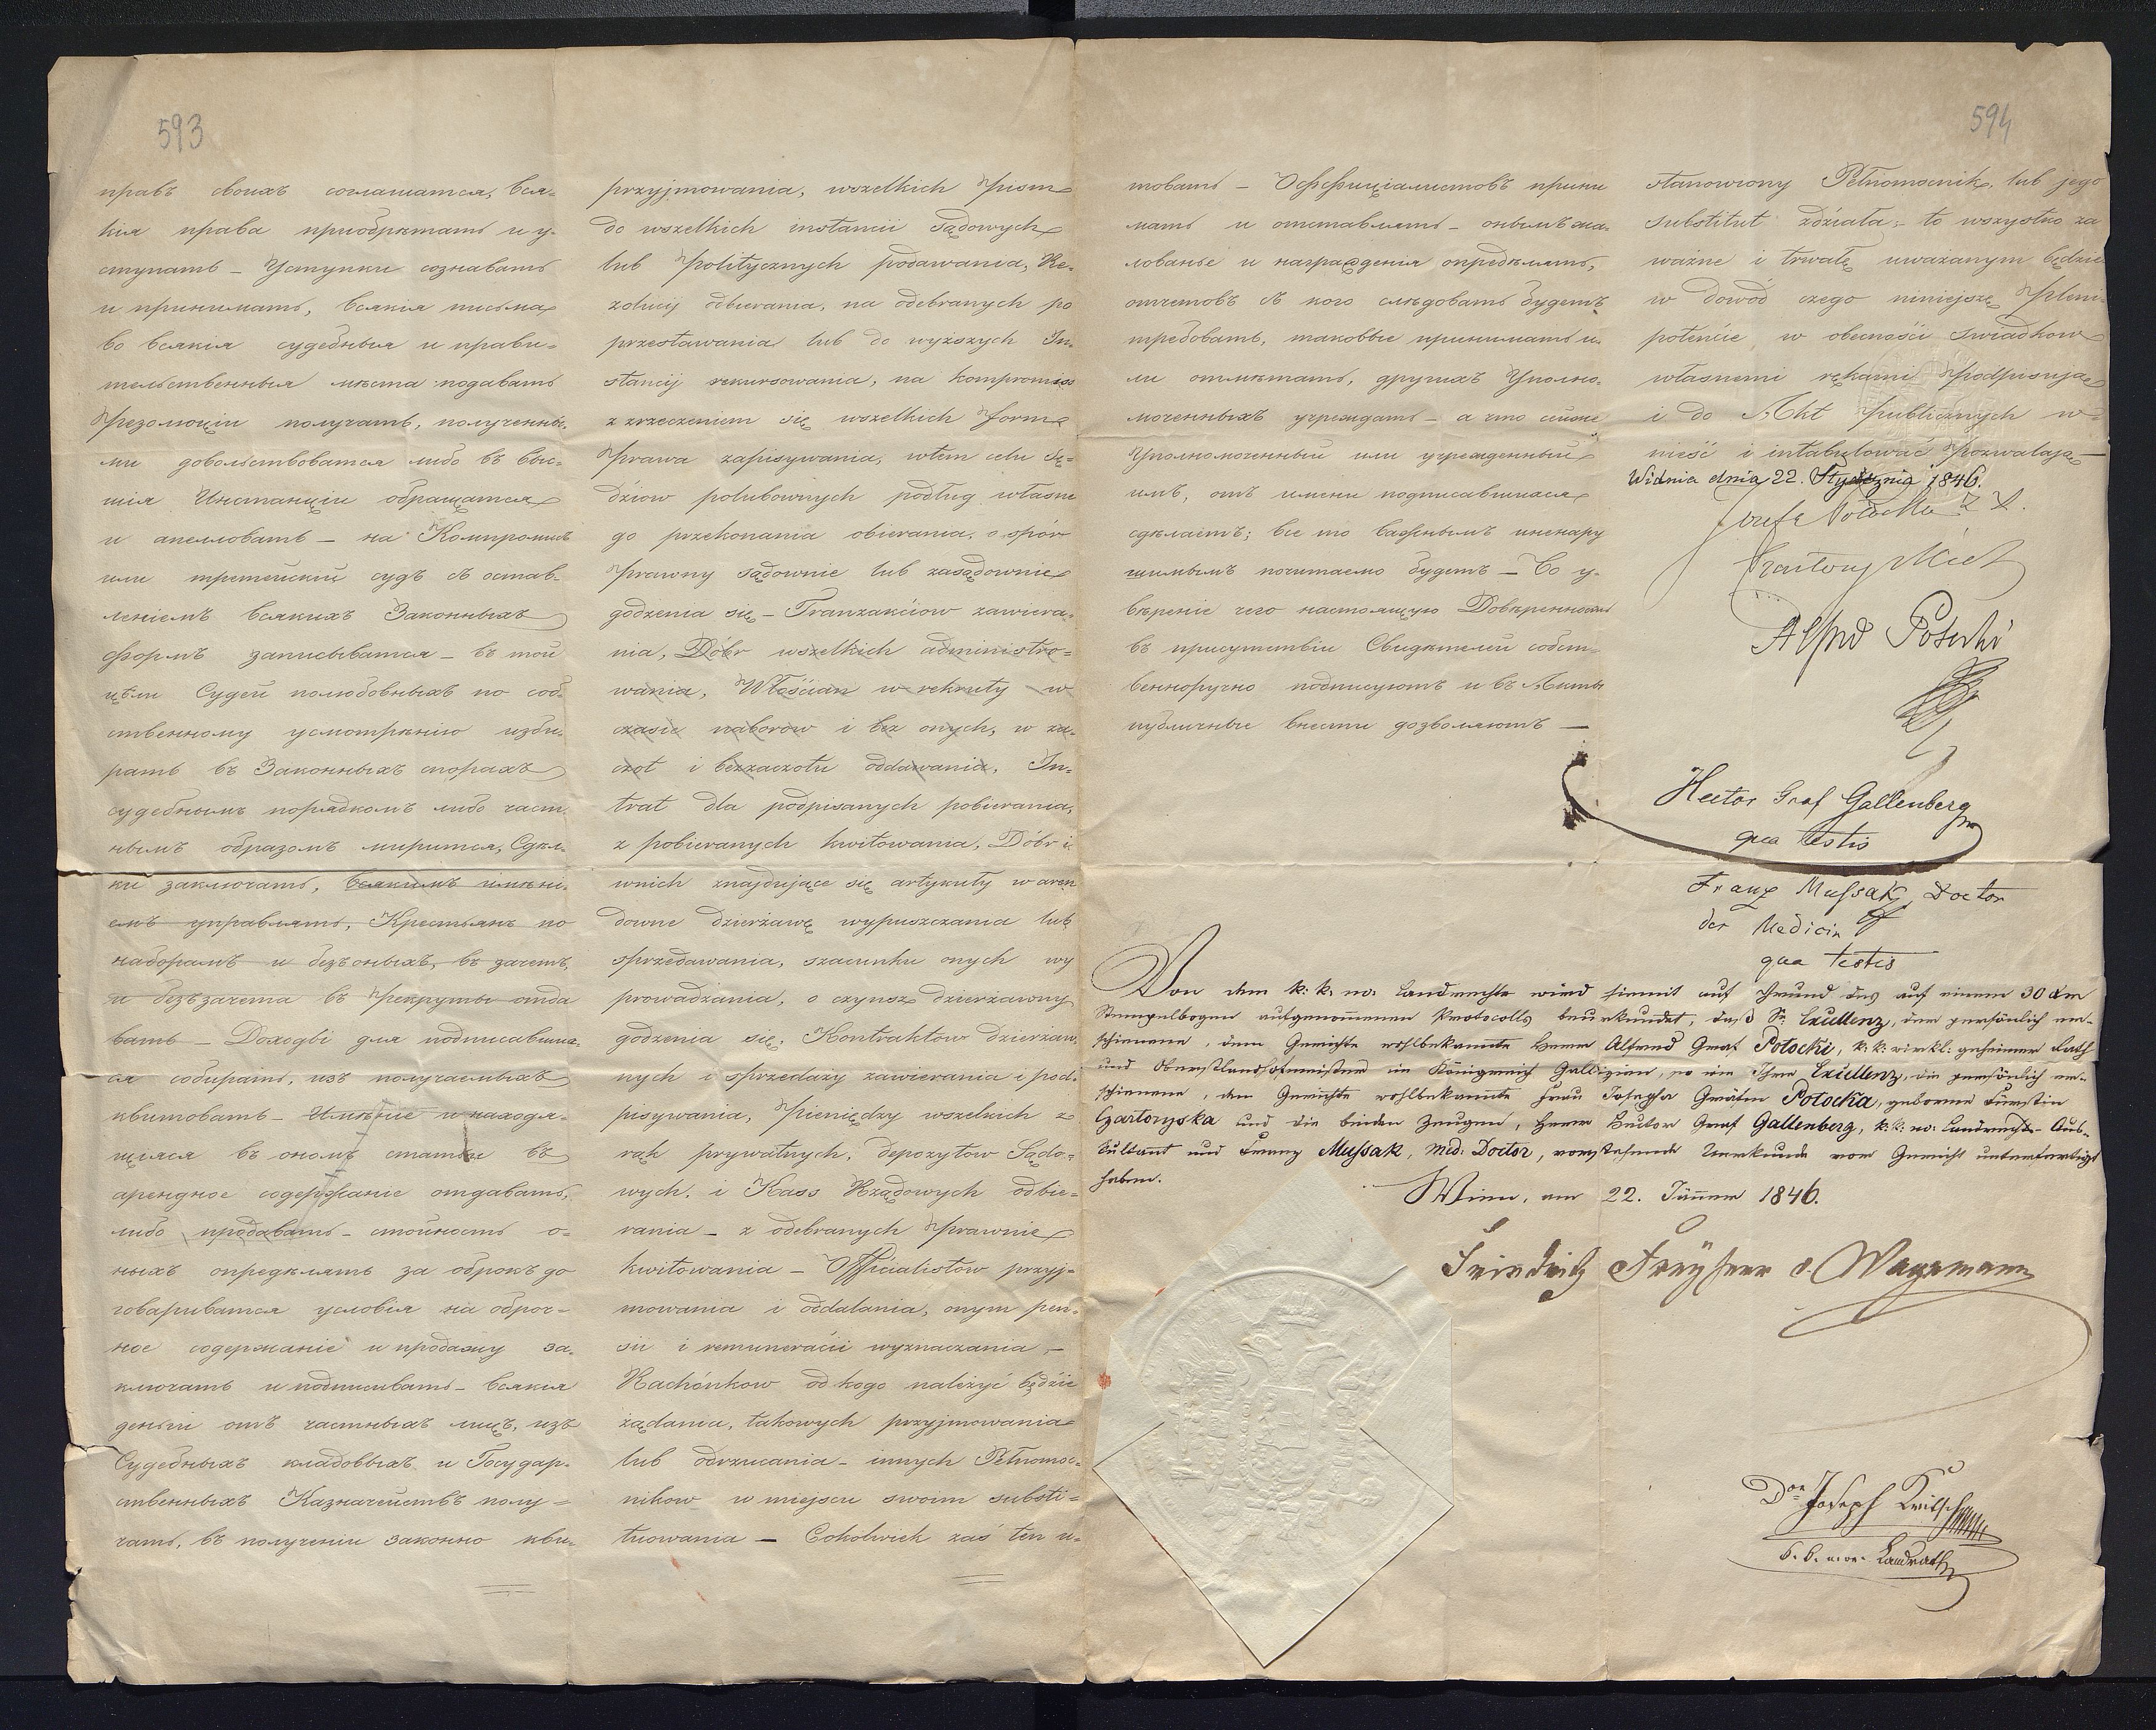 593
правъ своихъ соглашатся, вся-
кія права пріобрѣтать и у-
ступать – Уступки сознавать
и принимать, всякія письма
во всякія судебныя и прави-
тельственныя мѣста подавать
Резолюціи получать, полученны-
ми довольствоватся либо въ выс-
шія Инстанціи обращатся
и апелловать – на Компромисъ
или третейскій судъ съ остав-
леніемъ всякихъ Законныхъ
формъ записыватся – въ той
цѣли Судей полюбовныхъ по соб-
ственному усмотрѣнію изби-
рать въ Законныхъ спорахъ
судебнымъ порядкомъ либо част-
нымъ образомъ мирится, Сдѣл-
ки заключать, всякимъ имѣні-
емъ управлять, Крестьянъ по
наборамъ и безъ оныхъ, въ зачетъ,
и безъ зачета въ Рекруты отда
вать – Доходы для подписавших-
ся собирать, изъ получаемыхъ
квитовать – Имѣніе и находя-
щіяся въ ономъ статьи въ
арендное содержаніе отдавать,
либо продавать – стоимость о-
ныхъ опредѣлять за оброкъ до
говариватся условія на оброч-
ное содержаніе и продажу за-
ключать и подписивать – всякія
деньги отъ частныхъ лицъ, изъ
Судебныхъ кладовыхъ и Государ-
ственныхъ Казначействъ полу-
чать, въ полученіи законно кви-
przyjmowania, wszelkich Pism
do wszelkich instancii Sądowych
lub Politycznych podawania, Re-
zolucij odbierania, na odebranych po
przestawania lub do wyższych In-
stancij rekursowania, na kompromiss
z zrzeczeniem się wszelkich form
Prawa zapisywania, wtem celu Sę-
dziow polubownych podług własne
go przekonania obierania, o spór
Prawny sądownie lub zasądownie
godzenia się – Tranzakciow zawiera-
nia, Dóbr wszelkich administro-
wania, Włościan w rekruty w
czasie naborów i bez onych, w za-
czot i bezzaczotu oddawania, In-
trat dla podpisanych pobierania,
z pobieranych kwitowania, Dóbr i
wnich znajdujące się artykuły w aren
downe dzierżawę wypuszczania lub
sprzedawania, szacunku onych wy
prowadzania, o czynsz dzierżawny
godzenia się, Kontraktow dzierżaw-
nych i sprzedaży zawierania i pod-
pisywania, Pieniędzy wszelkich z
rąk prywatnych, depozytow Sądo-
wych, i Kass Rządowych odbie-
rania – z odebranych Prawnie
kwitowania – Officialistow przyj-
mowania i oddalania, onym pen-
sii i remuneracii wyznaczania, –
Rachónkow od kogo należyć będzie
żądania, takowych przyjmowania
lub odrzucania – innych Pełnomoc-
nikow w miejscu swoim substi-
tuowania – Cokolwiek zaś ten u-
594
товать – Оффиціалистовъ прини
мать и отставлять – онымъ жа-
лованье и награжденія опредѣлять,
отчетовъ съ кого слѣдовать будетъ
требовать, таковые принимать и-
ли отмѣтать, другихъ Уполно-
моченныхъ учреждать – а что сейже
Уполномоченный или учрежденный
имъ, отъ имени подписавшихся
сдѣлаетъ; все то важнымъ и ненару
шимымъ почитаемо будетъ – Во у-
вѣреніе чего настоящую Довѣренность
въ присутствіи Свидѣтелей собст-
венноручно подписуютъ и въ Акты
публичные внести дозволяютъ –
stanowiony Pełnomocnik, lub jego
substitut zdziała; to wszystko za
ważne i trwałe uważanym będzie
w dowód czego niniejszą Pleni-
potencie w obecności Swiadkow
własnemi rękami Podpisują
i do Akt Publicznych w-
nieść i intabulować Pozwalają –
Widnia dnia 22. Stycznia 1846.
Józefa Potocka z X.
Alfred Potocki
Hector Graf Gallenberg
qua testis
Franz Mussak, Doctor
der Medicin
qua testis
Von dem k: k: n: ö: Landrechte wird hiemit auf Grund des auf einem 30 Xr
Stempelbogen aufgenommenen Protocolls beurkundet, daß Se Excellenz, der persönlich er-
schienene, dem Gerichte wohlbekannte Herr Alfred Graf Potocki, k: k: wirkl: geheimer Rath
und Oberstlandhofmeister im Königreich Gallizien, so wie Ihre Excellenz, die persönlich er-
schienene, dem Gerichte wohlbekannte Frau Josepha Gräfin Potocka, geborne Fürstin
Czartoryska und die beiden Zeugen, Herr Hector Graf Gallenberg, k: k: n: ö: Landrechts-Aus-
kultant und Franz Mussak, Med: Doctor, vorstehende Urkunde vor Gericht unterfertigt
haben.
Wien, am 22. Jänner 1846.
Dor Joseph
k. k. n. ö. Landrath